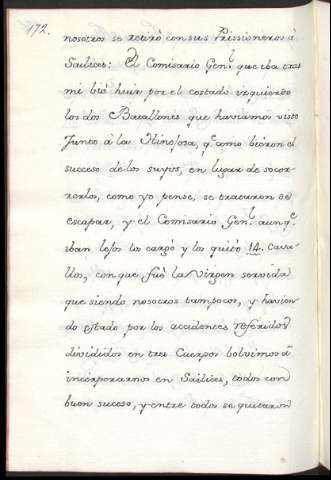 172.
nosotros se retirò con sus Prissioneros à
Saèlices: El Comisario Gen.l que iba tras
mi biò huir por el costado izquierdo
los dos Batallones que haviamos visto
Junto à la Hinojosa, q.e como bieron el
suceso de los suyos, en lugar de socor-
rerlos, como yo pense, se trataron de
escapar, y el Comisario Gen.l aunq.e
iban lejos los cargò y les quitò 14. Cava-
llos, con que fuè la Virgen servida
que siendo nosotros tampocos, y havien
do estado por los accidentes referidos
divididos en tres Cuerpos bolvimos à
incorporarnos en Saèlices, todos con
buen suceso, y entre todos se quitaron